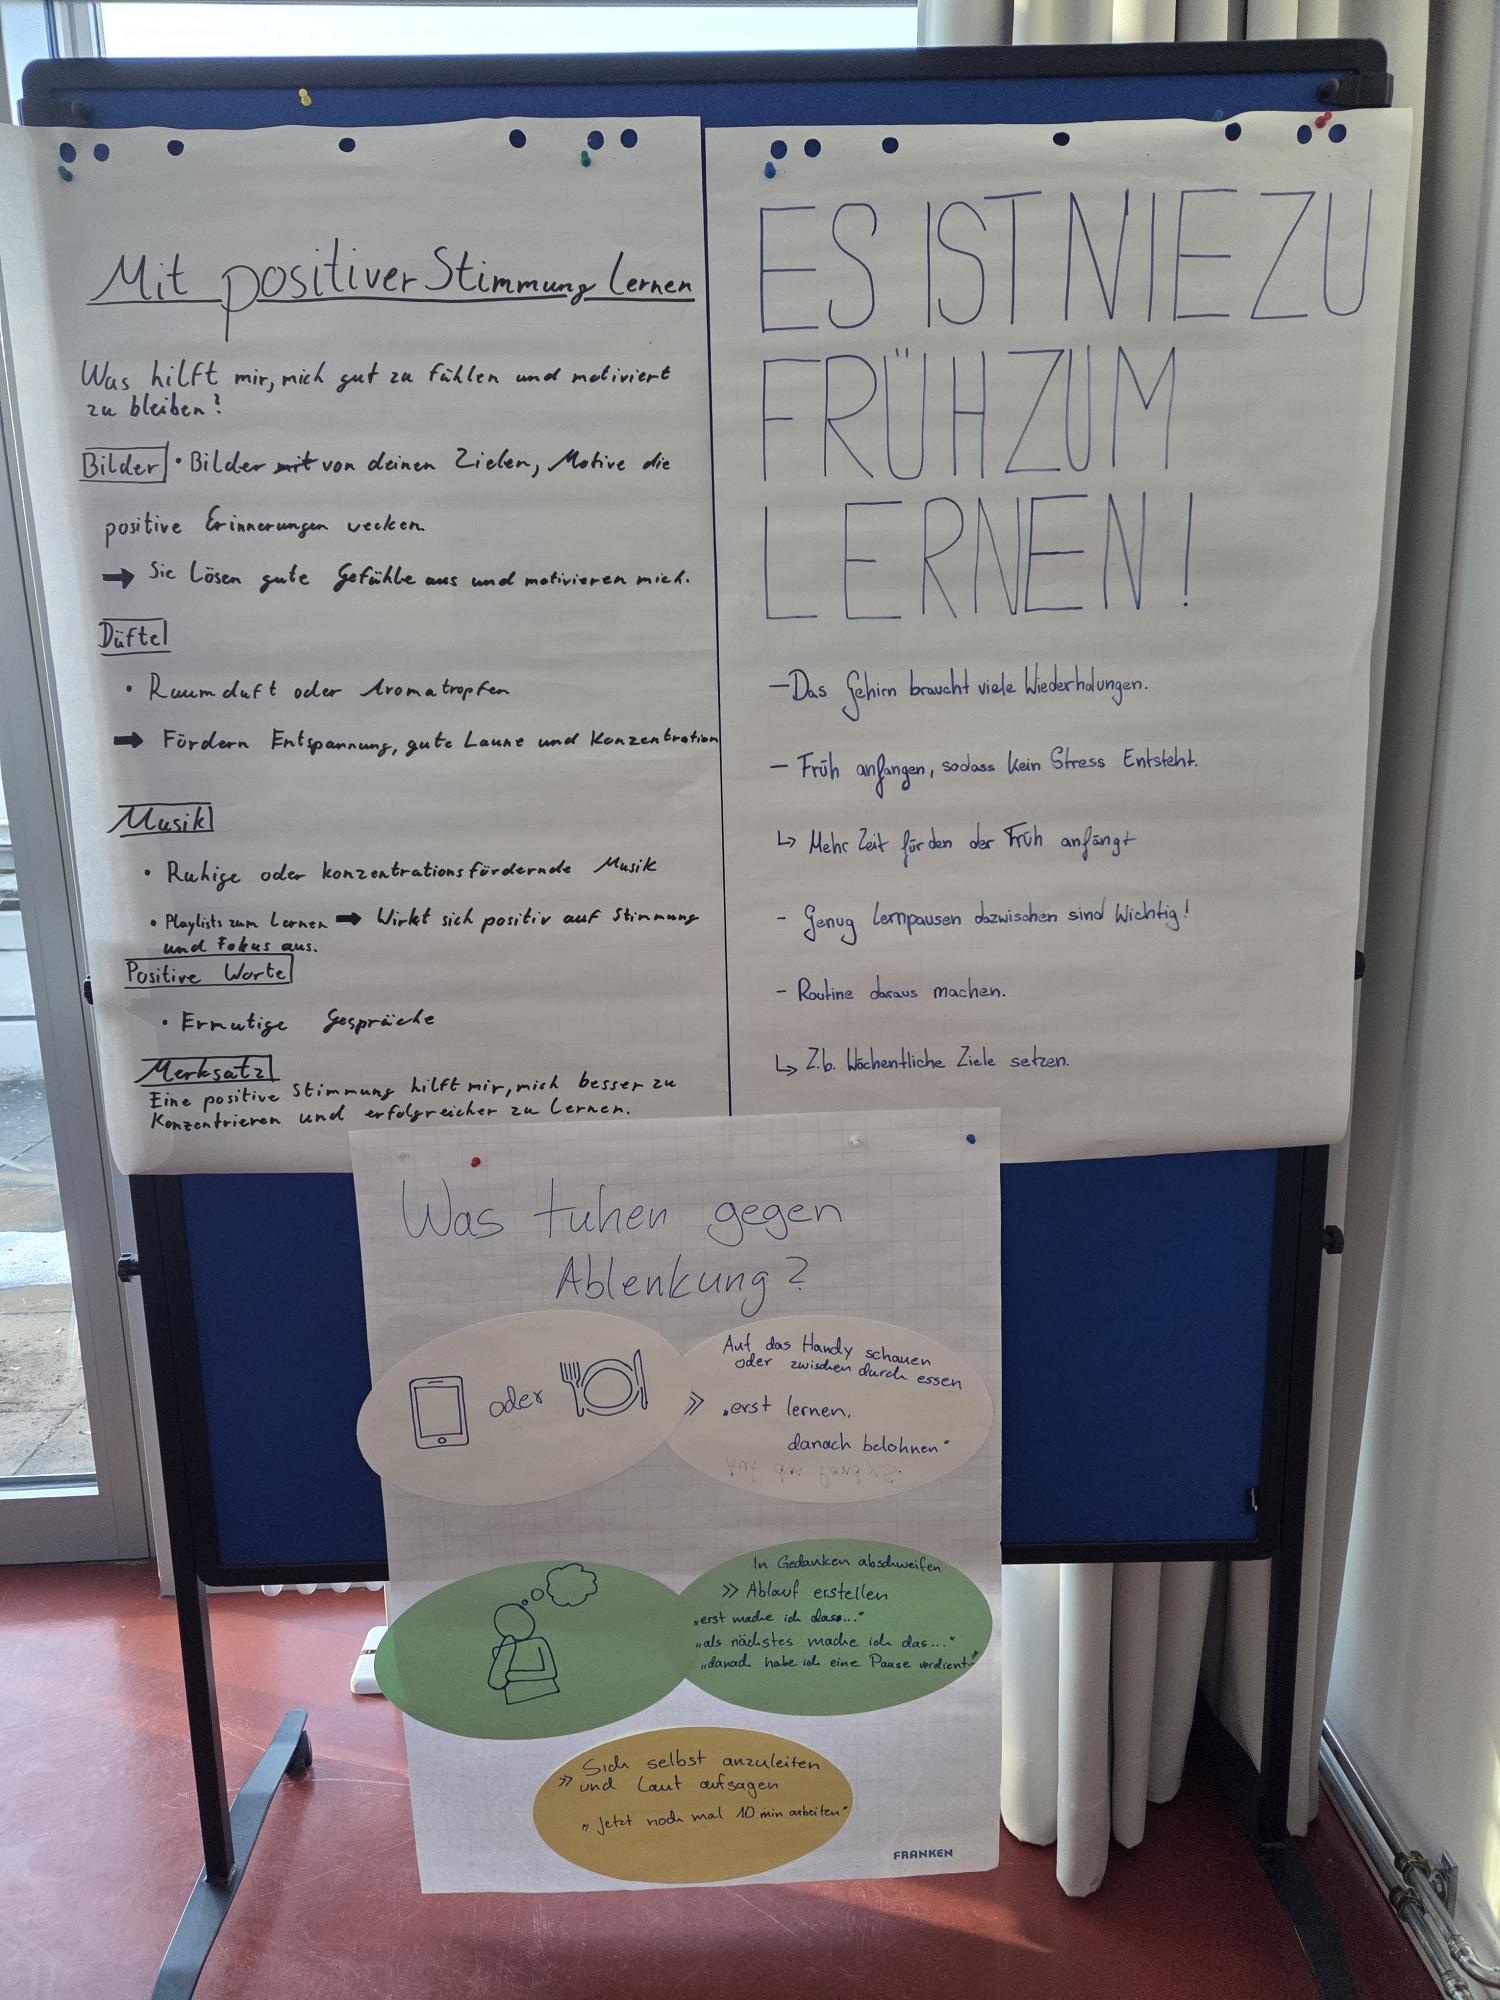 Mit positiver Stimmung Lernen
Was hilft mir, mich gut zu fühlen und motiviert
zu bleiben?
Bilder • Bilder mit von deinen Zielen, Motive die
positive Erinnerungen wecken
➡ Sie Lösen gute Gefühle aus und motivieren mich.
Düfte
• Raumduft oder Aromatropfen
➡ Fördern Entspannung, gute Laune und Konzentration
Musik
• Ruhige oder konzentrationsfördernde Musik
• Playlists zum Lernen ➡ Wirkt sich positiv auf Stimmung
und Fokus aus.
Positive Worte
• Ermutige Gespräche
Merksatz
Eine positive Stimmung hilft mir, mich besser zu
Konzentrieren und erfolgreicher zu Lernen.
ES IST NIE ZU
FRÜH ZUM
LERNEN!
– Das Gehirn braucht viele Wiederholungen.
– Früh anfangen, sodass kein Stress Entsteht.
↳ Mehr Zeit für den der Früh anfängt
- Genug lernpausen dazwischen sind Wichtig!
- Routine daraus machen.
↳ Z.b. Wöchentliche Ziele setzen.
Was tuhen gegen
Ablenkung?
oder
Auf das Handy schauen
oder zwischen durch essen
» „erst lernen,
danach belohnen"
Auf das Handy s
In Gedanken abschweifen
» Ablauf erstellen
„erst mache ich dass..."
„als nächstes mache ich das..."
„danach habe ich eine Pause verdient."
Sich selbst anzuleiten
» und Laut aufsagen
„Jetzt noch mal 10 min arbeiten"
FRANKEN